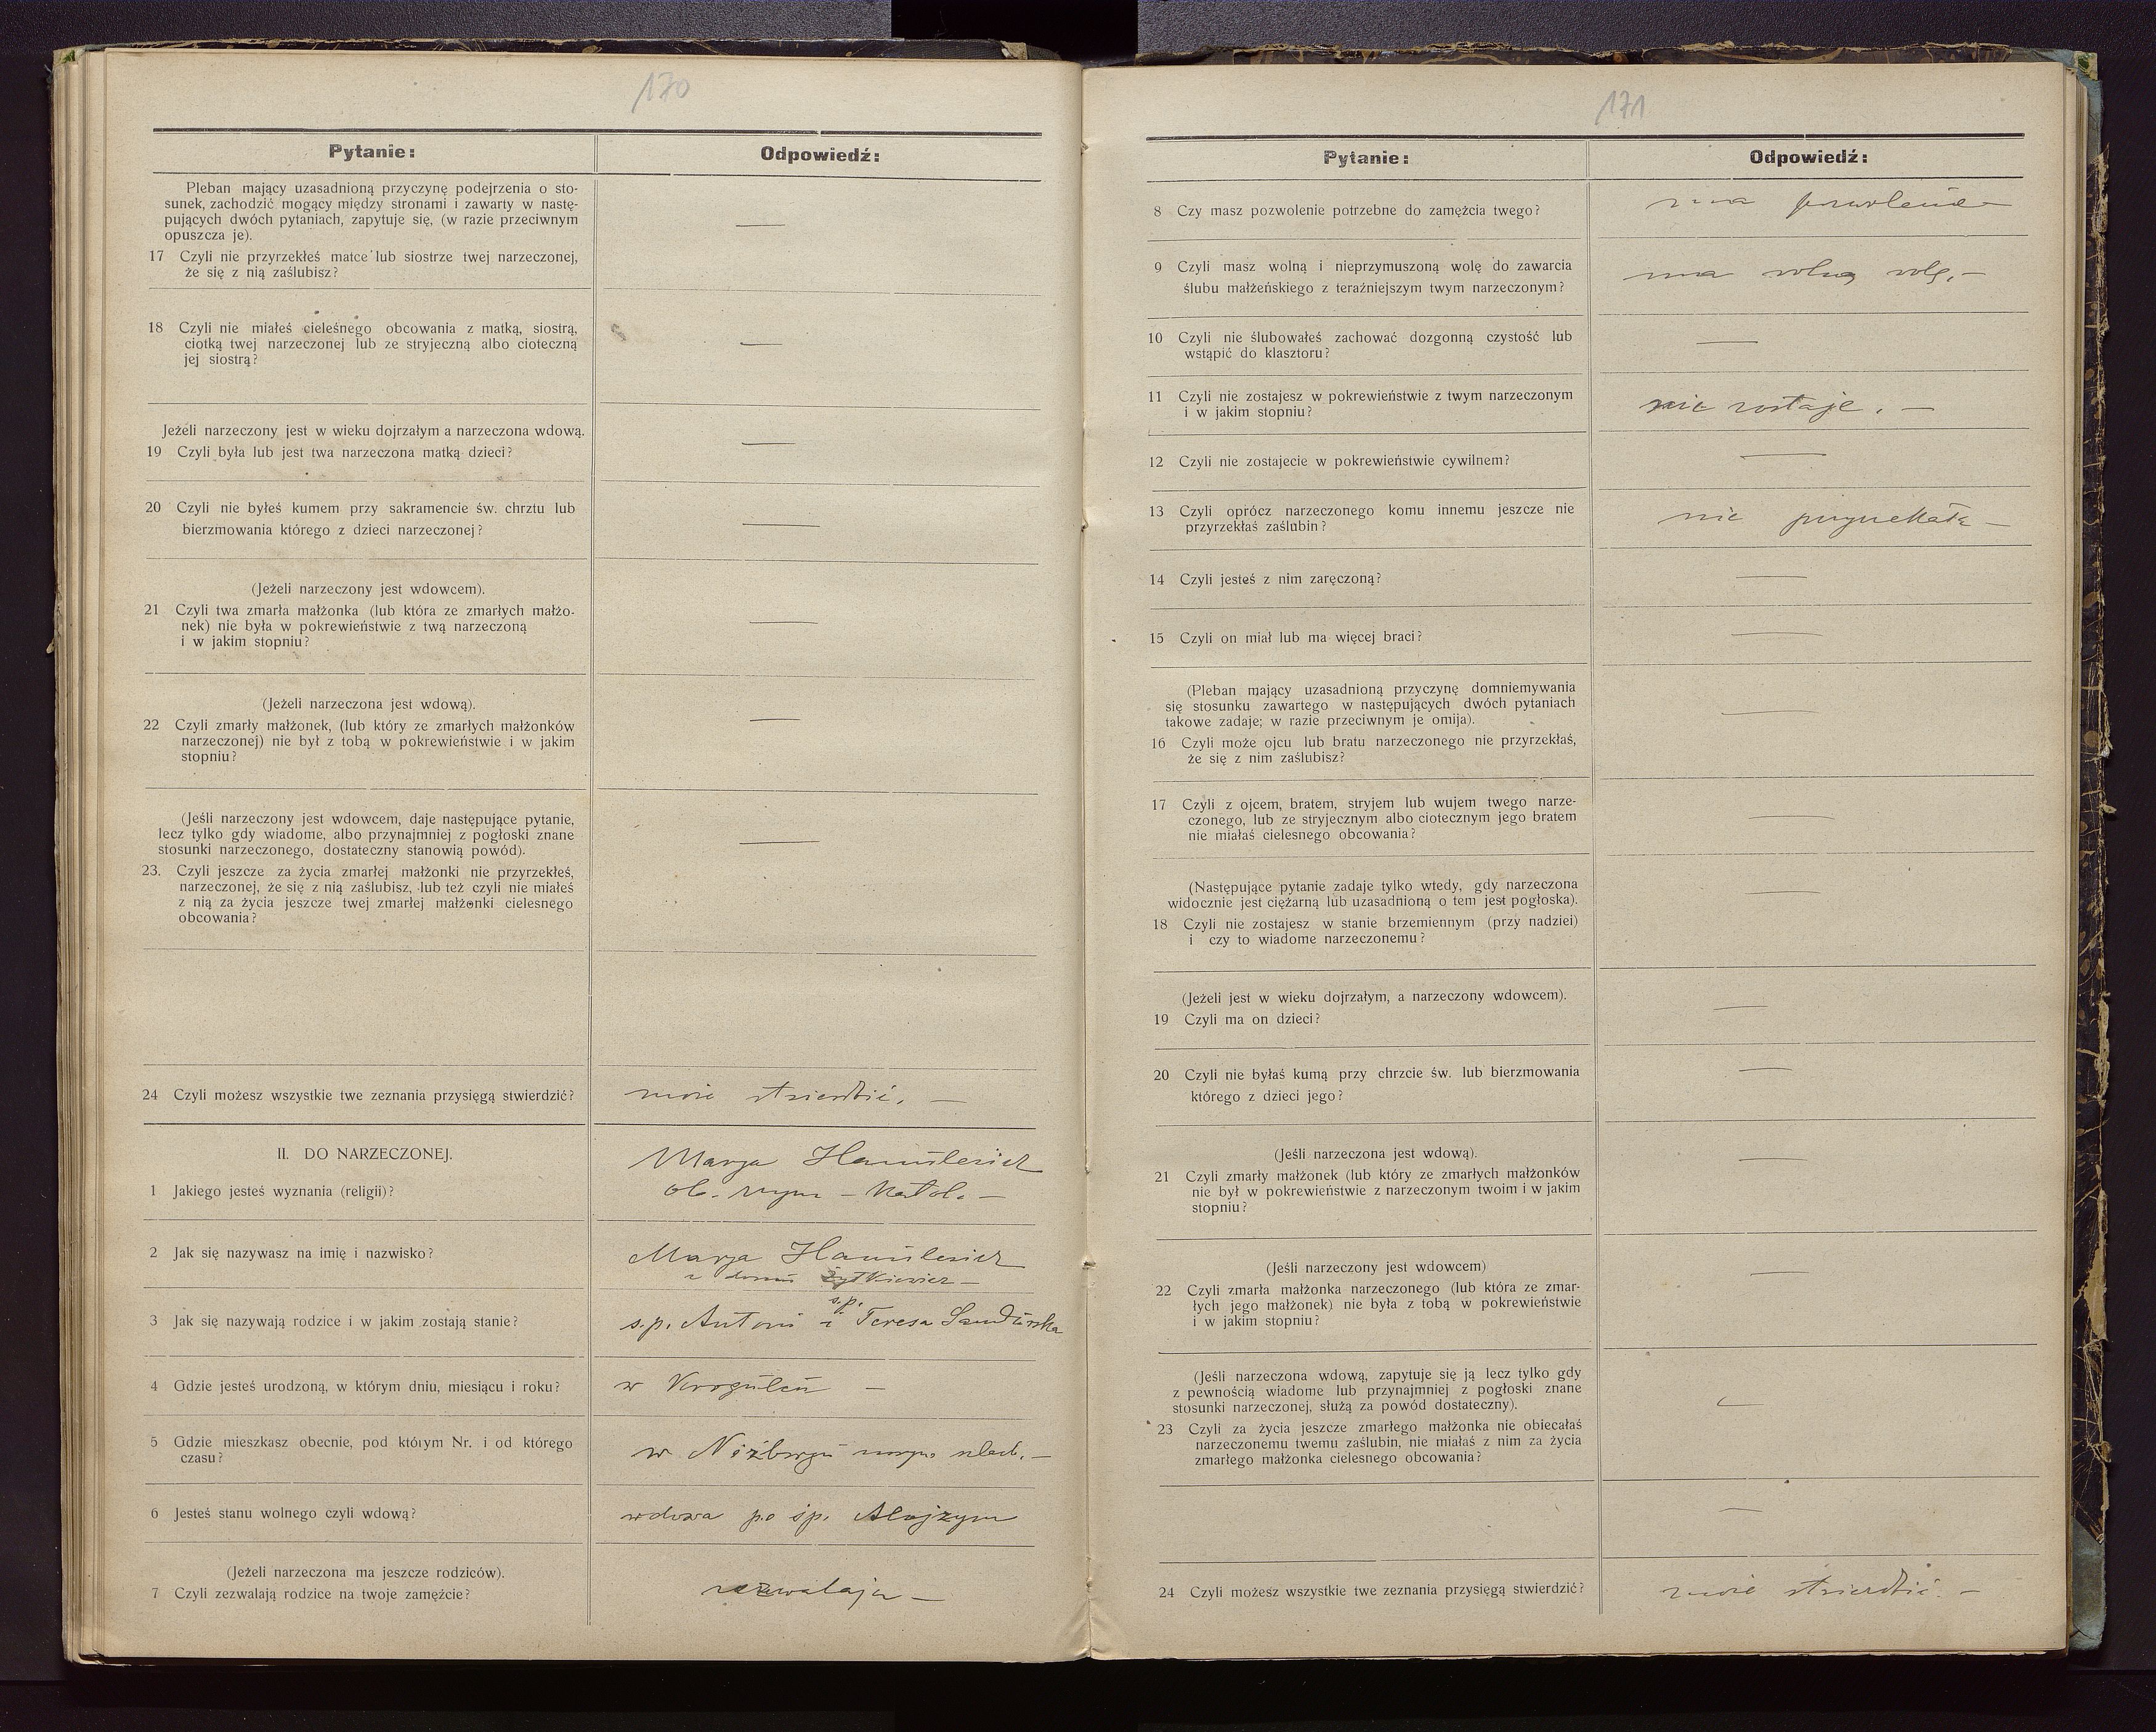 170
Pytanie:
Odpowiedź:
Pleban mający uzasadnioną przyczynę podejrzenia o sto-
sunek, zachodzić mogący między stronami i zawarty w nastę-
pujących dwóch pytaniach, zapytuje się, (w razie przeciwnym
opuszcza je).
17 Czyli nie przyrzekłeś matce lub siostrze twej narzeczonej,
że się z nią zaślubisz?
—
18 Czyli nie miałeś cieleśnego obcowania z matką, siostrą,
ciotką twej narzeczonej lub ze stryjeczną albo cioteczną
jej siostrą?
—
Jeżeli narzeczony jest w wieku dojrzałym a narzeczona wdową.
19 Czyli była lub jest twa narzeczona matką dzieci?
—
20 Czyli nie byłeś kumem przy sakramencie św. chrztu lub
bierzmowania którego z dzieci narzeczonej?
—
(Jeżeli narzeczony jest wdowcem).
21 Czyli twa zmarła małżonka (lub która ze zmarłych małżo-
nek) nie była w pokrewieństwie z twą narzeczoną
i w jakim stopniu?
—
(Jeżeli narzeczona jest wdową).
22 Czyli zmarły małżonek, (lub który ze zmarłych małżonków
narzeczonej) nie był z tobą w pokrewieństwie i w jakim
stopniu?
—
(Jeśli narzeczony jest wdowcem, daje następujące pytanie,
lecz tylko gdy wiadome, albo przynajmniej z pogłoski znane
stosunki narzeczonego, dostateczny stanowią powód).
23. Czyli jeszcze za życia zmarłej małżonki nie przyrzekłeś,
narzeczonej, że się z nią zaślubisz, lub też czyli nie miałeś
z nią za życia jeszcze twej zmarłej małżonki cielesnego
obcowania?
—
24 Czyli możesz wszystkie twe zeznania przysięgą stwierdzić?
może stwierdzić. —
II. DO NARZECZONEJ.
1 Jakiego jesteś wyznania (religii)?
Marja
ob. rzym — katol. —
2 Jak się nazywasz na imię i nazwisko?
Marja
z domu Żytkiewicz —
3 Jak się nazywają rodzice i w jakim zostają stanie?
s.p.
s.p. Antoni i Teresa
4 Gdzie jesteś urodzoną, w którym dniu, miesiącu i roku?
w Krogulcu —
5 Gdzie mieszkasz obecnie, pod którym Nr. i od którego
czasu?
w Niżborgu szlach. —
6 Jesteś stanu wolnego czyli wdową?
wdowa po śp. Alojzym
(Jeżeli narzeczona ma jeszcze rodziców).
7 Czyli zezwalają rodzice na twoje zamężcie?
zezwalają —
171
Pytanie:
Odpowiedź:
8 Czy masz pozwolenie potrzebne do zamężcia twego?
ma pozwolenie
9 Czyli masz wolną i nieprzymuszoną wolę do zawarcia
ślubu małżeńskiego z teraźniejszym twym narzeczonym?
ma wolną wolę. —
10 Czyli nie ślubowałeś zachować dozgonną czystość lub
wstąpić do klasztoru?
—
11 Czyli nie zostajesz w pokrewieństwie z twym narzeczonym
i w jakim stopniu?
nie zostaje. —
12 Czyli nie zostajecie w pokrewieństwie cywilnem?
—
13 Czyli oprócz narzeczonego komu innemu jeszcze nie
przyrzekłaś zaślubin?
nie przyrzekała —
14 Czyli jesteś z nim zaręczoną?
—
15 Czyli on miał lub ma więcej braci?
—
(Pleban mający uzasadnioną przyczynę domniemywania
się stosunku zawartego w następujących dwóch pytaniach
takowe zadaje; w razie przeciwnym je omija).
16 Czyli może ojcu lub bratu narzeczonego nie przyrzekłaś,
że się z nim zaślubisz?
—
17 Czyli z ojcem, bratem, stryjem lub wujem twego narze-
czonego, lub ze stryjecznym albo ciotecznym jego bratem
nie miałaś cielesnego obcowania?
—
(Następujące pytanie zadaje tylko wtedy, gdy narzeczona
widocznie jest ciężarną lub uzasadnioną o tem jest pogłoska).
18 Czyli nie zostajesz w stanie brzemiennym (przy nadziei)
i czy to wiadome narzeczonemu?
—
(Jeżeli jest w wieku dojrzałym, a narzeczony wdowcem).
19 Czyli ma on dzieci?
—
20 Czyli nie byłaś kumą przy chrzcie św. lub bierzmowania
którego z dzieci jego?
—
(Jeśli narzeczona jest wdową).
21 Czyli zmarły małżonek (lub który ze zmarłych małżonków
nie był w pokrewieństwie z narzeczonym twoim i w jakim
stopniu?
—
(Jeśli narzeczony jest wdowcem)
22 Czyli zmarła małżonka narzeczonego (lub która ze zmar-
łych jego małżonek) nie była z tobą w pokrewieństwie
i w jakim stopniu?
—
(Jeśli narzeczona wdową, zapytuje się ją lecz tylko gdy
z pewnością wiadome lub przynajmniej z pogłoski znane
stosunki narzeczonej, służą za powód dostateczny).
23 Czyli za życia jeszcze zmarłego małżonka nie obiecałaś
narzeczonemu twemu zaślubin, nie miałaś z nim za życia
zmarłego małżonka cielesnego obcowania?
—
—
24 Czyli możesz wszystkie twe zeznania przysięgą stwierdzić?
może stwierdzić. —